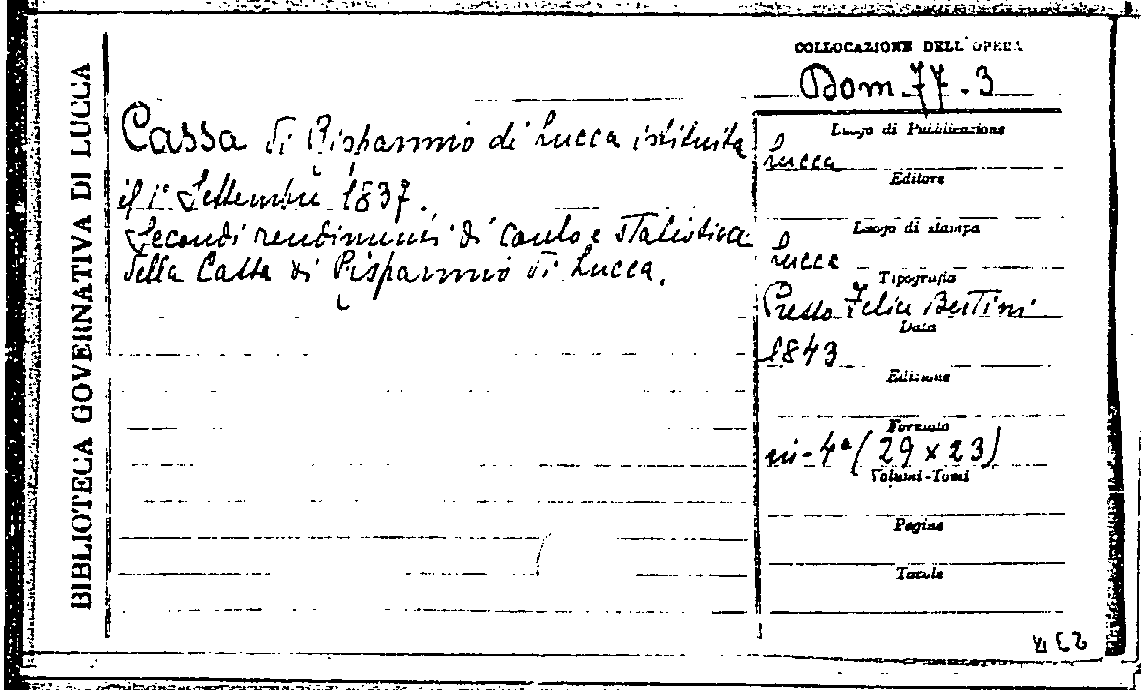 BIBLIOTECA GOVERNATIVA DI LUCCA
COLLOCAZIONE DELL'OPERA
Dom. 77. 3
Cassa di Risparmio di Lucca istituita
il 1° Settembre 1837.
Secondi rendimenti di conto e statistica
della Cassa di Risparmio di Lucca.
Luogo di Pubblicazione
Lucca
Editore
Luogo di stampa
Lucca
Tipografia
Presso Felice Bertini
Data
1843
Edizione
Formato
in-4° (29 x 23)
Volumi-Tomi
Pagine
Tavole